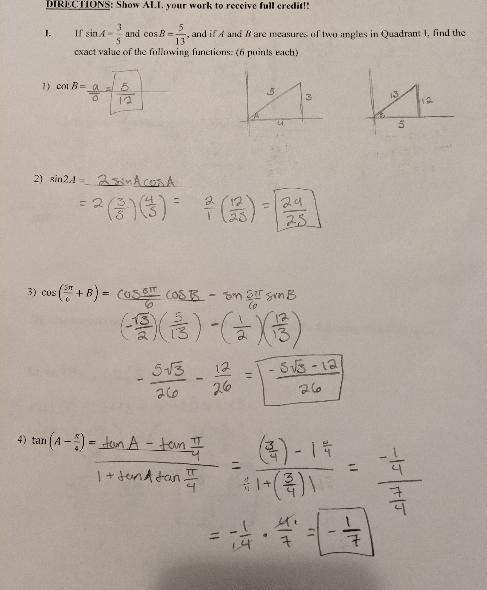 DIRECTIONS: Show ALL your work to receive full credit!!
1. If sin A = 3/5 and cos B = 5/13, and if A and B are measures of two angles in Quadrant I, find the
exact value of the following functions: (6 points each)
1) cot B = a/o = 5/12
5 3 4
13 12 5
2) sin2A = 2 sinA cosA
= 2 (3/5)(4/5) = 2/1 (12/25) = 24/25
3) cos(5π/6 + B) = cos 5π/6 cos B - sin 5π/6 sin B
(-√3/2)(5/13) - (1/2)(12/13)
- 5√3/26 - 12/26 = -5√3-12/26
4) tan(A - π/4) = tan A - tan π/4 / 1 + tan A tan π/4 = (3/4) - 1 4/4 / 4/4 1 + (3/4) 1 = -1/4 / 7/4
= -1/4 · 4/7 = -1/7